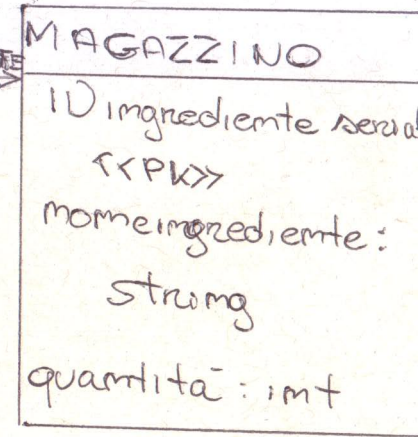 MAGAZZINO
IDingrediente serial
<<PK>>
nomeingrediente:
string
quantità: int